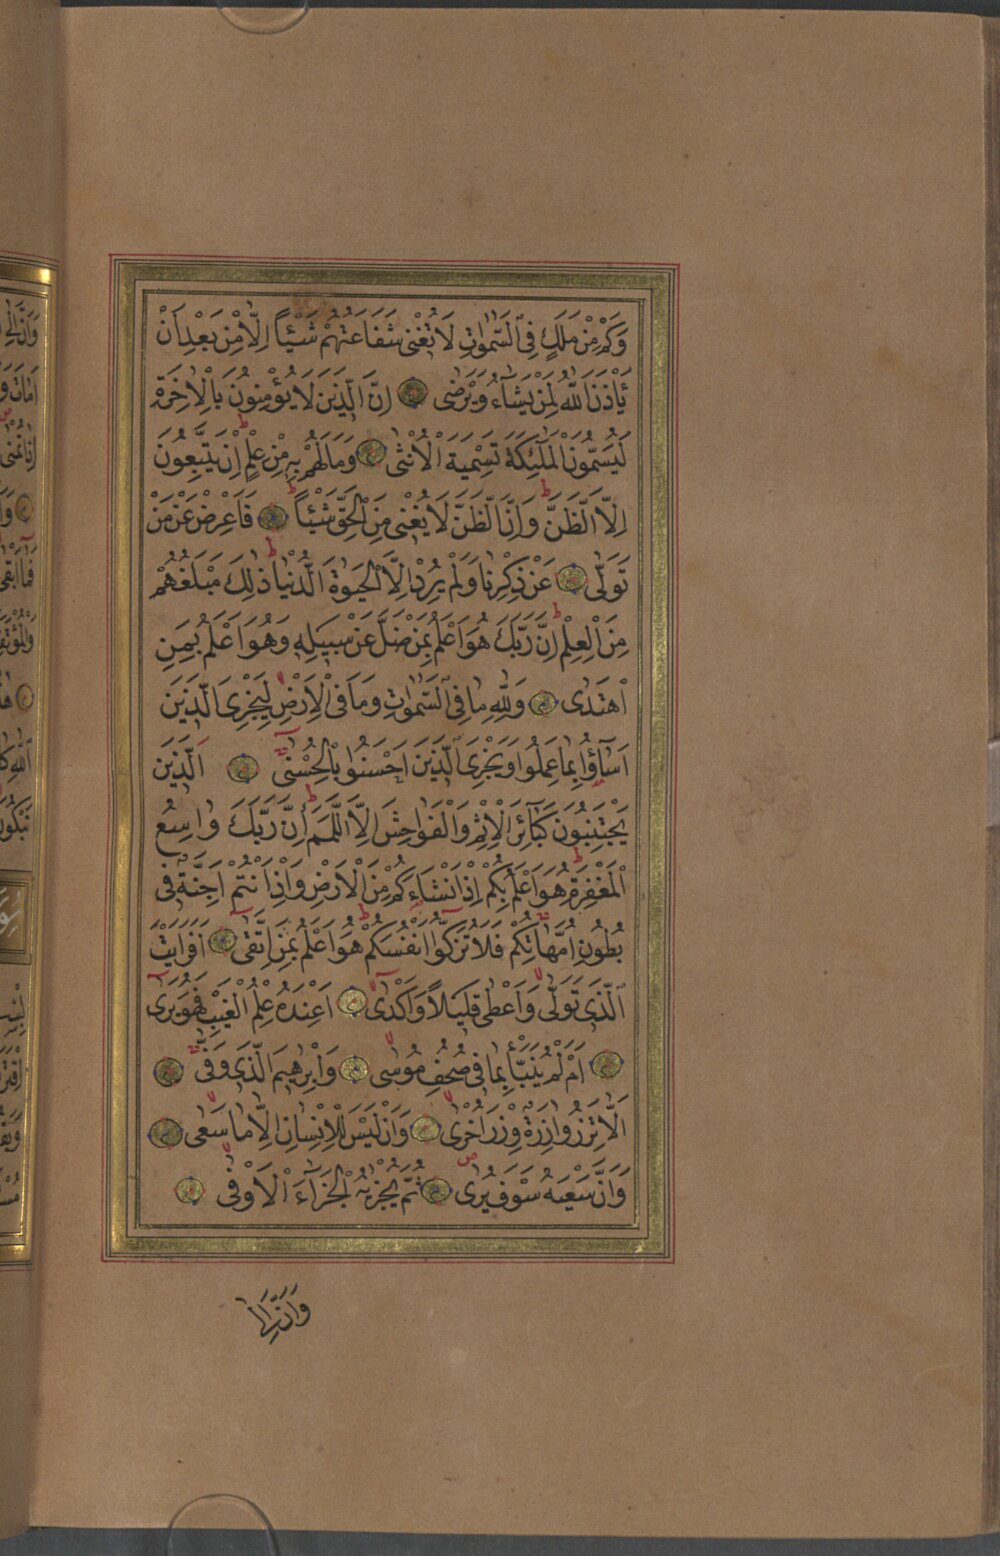 وَكَمْ مِنْ مَلَكٍ فِي السَّمٰوَاتِ لَا تُغْنِى شَفَاعَتُهُمْ شَيْـًٔا اِلَّا مِنْ بَعْدِ اَنْ
يَأْذَنَ اللّٰهُ لِمَنْ يَشَآءُ وَيَرْضٰى اِنَّ الَّذِينَ لَا يُؤْمِنُونَ بِالْاٰخِرَةِ
لَيُسَمُّونَ الْمَلٰٓئِكَةَ تَسْمِيَةَ الْاُنْثٰى وَمَا لَهُمْ بِهِ مِنْ عِلْمٍ اِنْ يَتَّبِعُونَ
اِلَّا الظَّنَّ وَاِنَّ الظَّنَّ لَا يُغْنِى مِنَ الْحَقِّ شَيْـًٔا فَاَعْرِضْ عَنْ مَنْ
تَوَلّٰى عَنْ ذِكْرِنَا وَلَمْ يُرِدْ اِلَّا الْحَيٰوةَ الدُّنْيَا ذٰلِكَ مَبْلَغُهُمْ
مِنَ الْعِلْمِ اِنَّ رَبَّكَ هُوَ اَعْلَمُ بِمَنْ ضَلَّ عَنْ سَبِيلِهِ وَهُوَ اَعْلَمُ بِمَنِ
اهْتَدٰى وَلِلّٰهِ مَا فِي السَّمٰوَاتِ وَمَا فِي الْاَرْضِ لِيَجْزِىَ الَّذِينَ
اَسَآؤُا بِمَا عَمِلُوا وَيَجْزِىَ الَّذِينَ اَحْسَنُوا بِالْحُسْنٰى اَلَّذِينَ
يَجْتَنِبُونَ كَبَآئِرَ الْاِثْمِ وَالْفَوَاحِشَ اِلَّا اللَّمَمَ اِنَّ رَبَّكَ وَاسِعُ
الْمَغْفِرَةِ هُوَ اَعْلَمُ بِكُمْ اِذْ اَنْشَاَكُمْ مِنَ الْاَرْضِ وَاِذْ اَنْتُمْ اَجِنَّةٌ فِي
بُطُونِ اُمَّهَاتِكُمْ فَلَا تُزَكُّوا اَنْفُسَكُمْ هُوَ اَعْلَمُ بِمَنِ اتَّقٰى اَفَرَاَيْتَ
الَّذِي تَوَلّٰى وَاَعْطٰى قَلِيلًا وَاَكْدٰى اَعِنْدَهُ عِلْمُ الْغَيْبِ فَهُوَ يَرٰى
اَمْ لَمْ يُنَبَّأْ بِمَا فِي صُحُفِ مُوسٰى وَاِبْرٰهِيمَ الَّذِي وَفّٰى
اَلَّا تَزِرُ وَازِرَةٌ وِزْرَ اُخْرٰى وَاَنْ لَيْسَ لِلْاِنْسَانِ اِلَّا مَا سَعٰى
وَاَنَّ سَعْيَهُ سَوْفَ يُرٰى ثُمَّ يُجْزٰيهُ الْجَزَآءَ الْاَوْفٰى